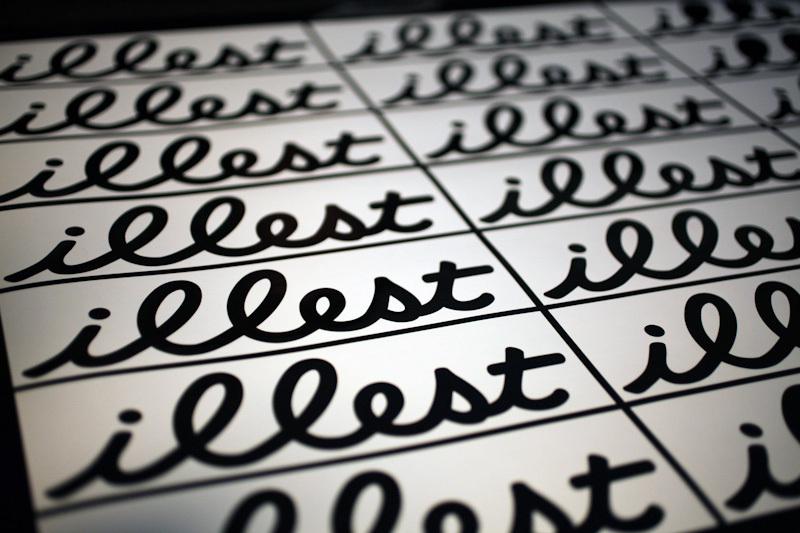 illest illest ille
illest illest ill
illest illest i
illest illest
illest illes
illest ill
illest il